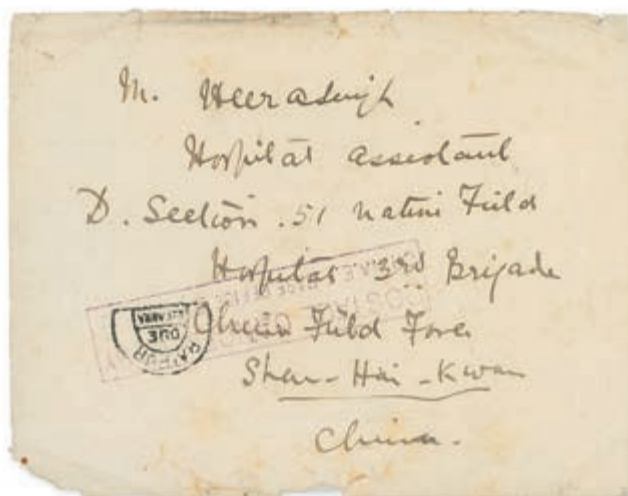 M. Heera Singh
Hospital assistant
D. Section . 51 Native Field
Hospital 3rd Brigade
China Field Force
Shan-Hai-Kwan
China.
POSTAGE
RAIPUR
DUE